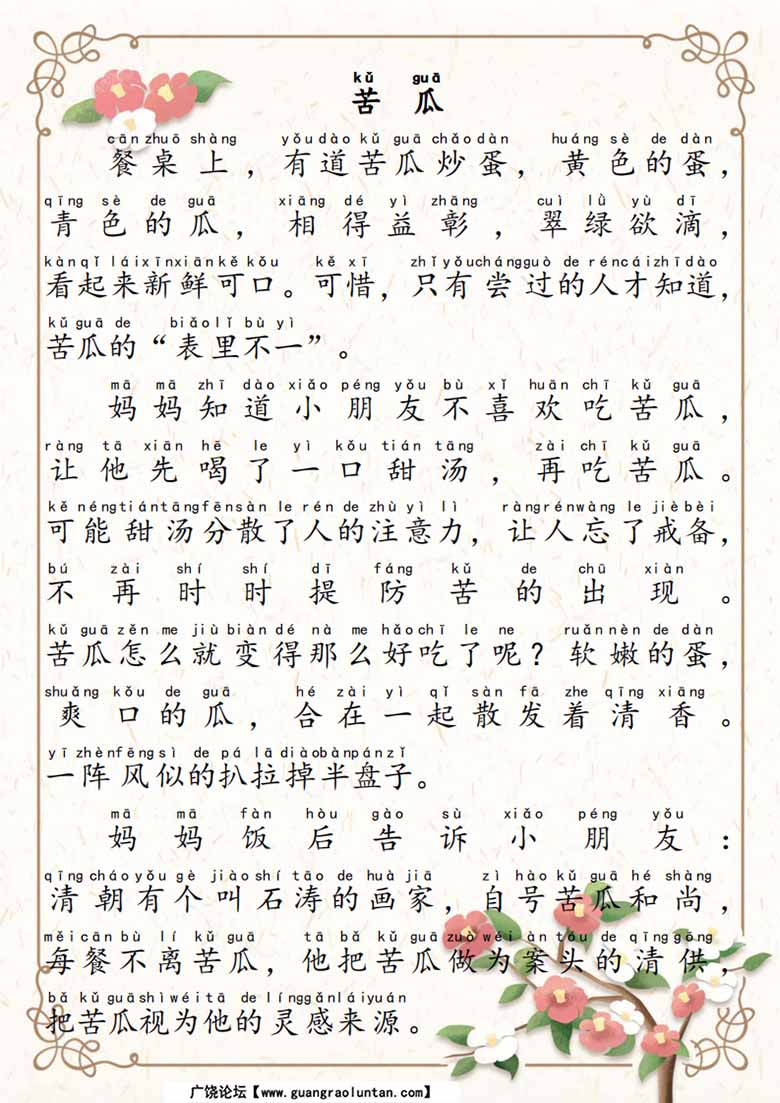 kǔ guā
苦瓜
cān zhuō shàng yǒu dào kǔ guā chǎo dàn huáng sè de dàn
餐桌上，有道苦瓜炒蛋，黄色的蛋，
qīng sè de guā xiāng dé yì zhāng cuì lǜ yù dī
青色的瓜，相得益彰，翠绿欲滴，
kàn qǐ lái xīn xiān kě kǒu kě xī zhǐ yǒu cháng guò de rén cái zhī dào
看起来新鲜可口。可惜，只有尝过的人才知道，
kǔ guā de biǎo lǐ bù yì
苦瓜的“表里不一”。
mā mā zhī dào xiǎo péng yǒu bù xǐ huān chī kǔ guā
妈妈知道小朋友不喜欢吃苦瓜，
ràng tā xiān hē le yì kǒu tián tāng zài chī kǔ guā
让他先喝了一口甜汤，再吃苦瓜。
kě néng tián tāng fēn sàn le rén de zhù yì lì ràng rén wàng le jiè bèi
可能甜汤分散了人的注意力，让人忘了戒备，
bú zài shí shí dī fáng kǔ de chū xiàn
不再时时提防苦的出现。
kǔ guā zěn me jiù biàn dé nà me hǎo chī le ne ruǎn nèn de dàn
苦瓜怎么就变得那么好吃了呢？软嫩的蛋，
shuǎng kǒu de guā hé zài yì qǐ sàn fā zhe qīng xiāng
爽口的瓜，合在一起散发着清香。
yī zhèn fēng sì de pá lā diào bàn pán zǐ
一阵风似的扒拉掉半盘子。
mā mā fàn hòu gào sù xiǎo péng yǒu
妈妈饭后告诉小朋友：
qīng cháo yǒu gè jiào shí tāo de huà jiā zì hào kǔ guā hé shàng
清朝有个叫石涛的画家，自号苦瓜和尚，
měi cān bù lí kǔ guā tā bǎ kǔ guā zuò wéi àn tóu de qīng gōng
每餐不离苦瓜，他把苦瓜做为案头的清供，
bǎ kǔ guā shì wéi tā de líng gǎn lái yuán
把苦瓜视为他的灵感来源。
广饶论坛【www.guangraoluntan.com】